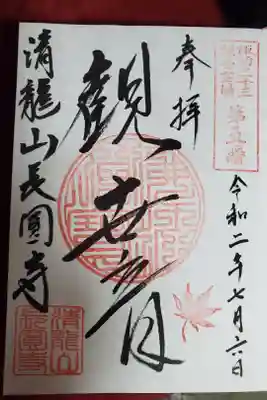 第五番
令和二年七月六日
奉拝
觀世音
清龍山長圓寺
清龍山
長圓寺